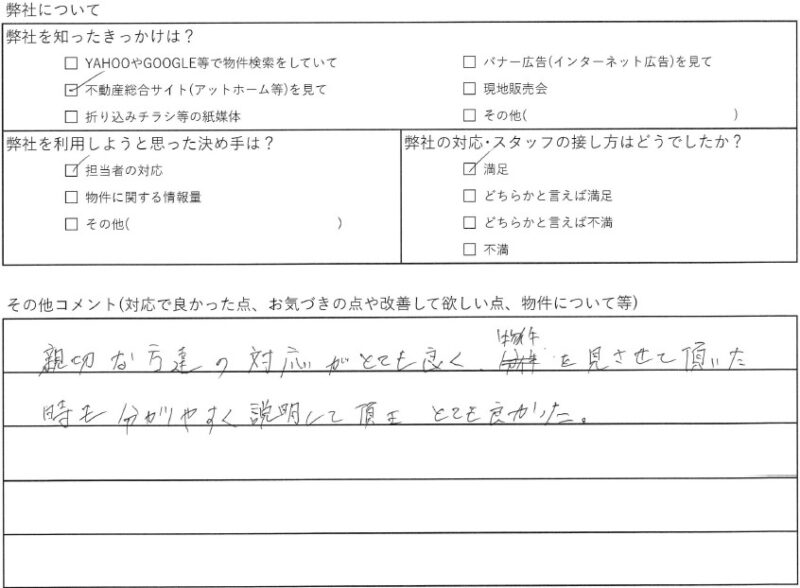 弊社について
弊社を知ったきっかけは？
□ YAHOOやGOOGLE等で物件検索をしていて
□ バナー広告(インターネット広告)を見て
☑ 不動産総合サイト(アットホーム等)を見て
□ 現地販売会
□ 折り込みチラシ等の紙媒体
□ その他( )
弊社を利用しようと思った決め手は？
☑ 担当者の対応
□ 物件に関する情報量
□ その他( )
弊社の対応・スタッフの接し方はどうでしたか？
☑ 満足
□ どちらかと言えば満足
□ どちらかと言えば不満
□ 不満
その他コメント(対応で良かった点、お気づきの点や改善して欲しい点、物件について等)
親切な方達の対応がとても良く、物件を見させて頂いた
時も分かりやすく説明して頂き とても良かった。